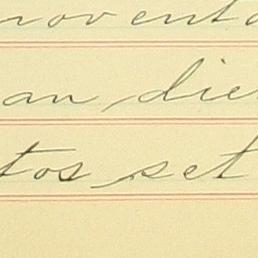 novent
an die
tos set